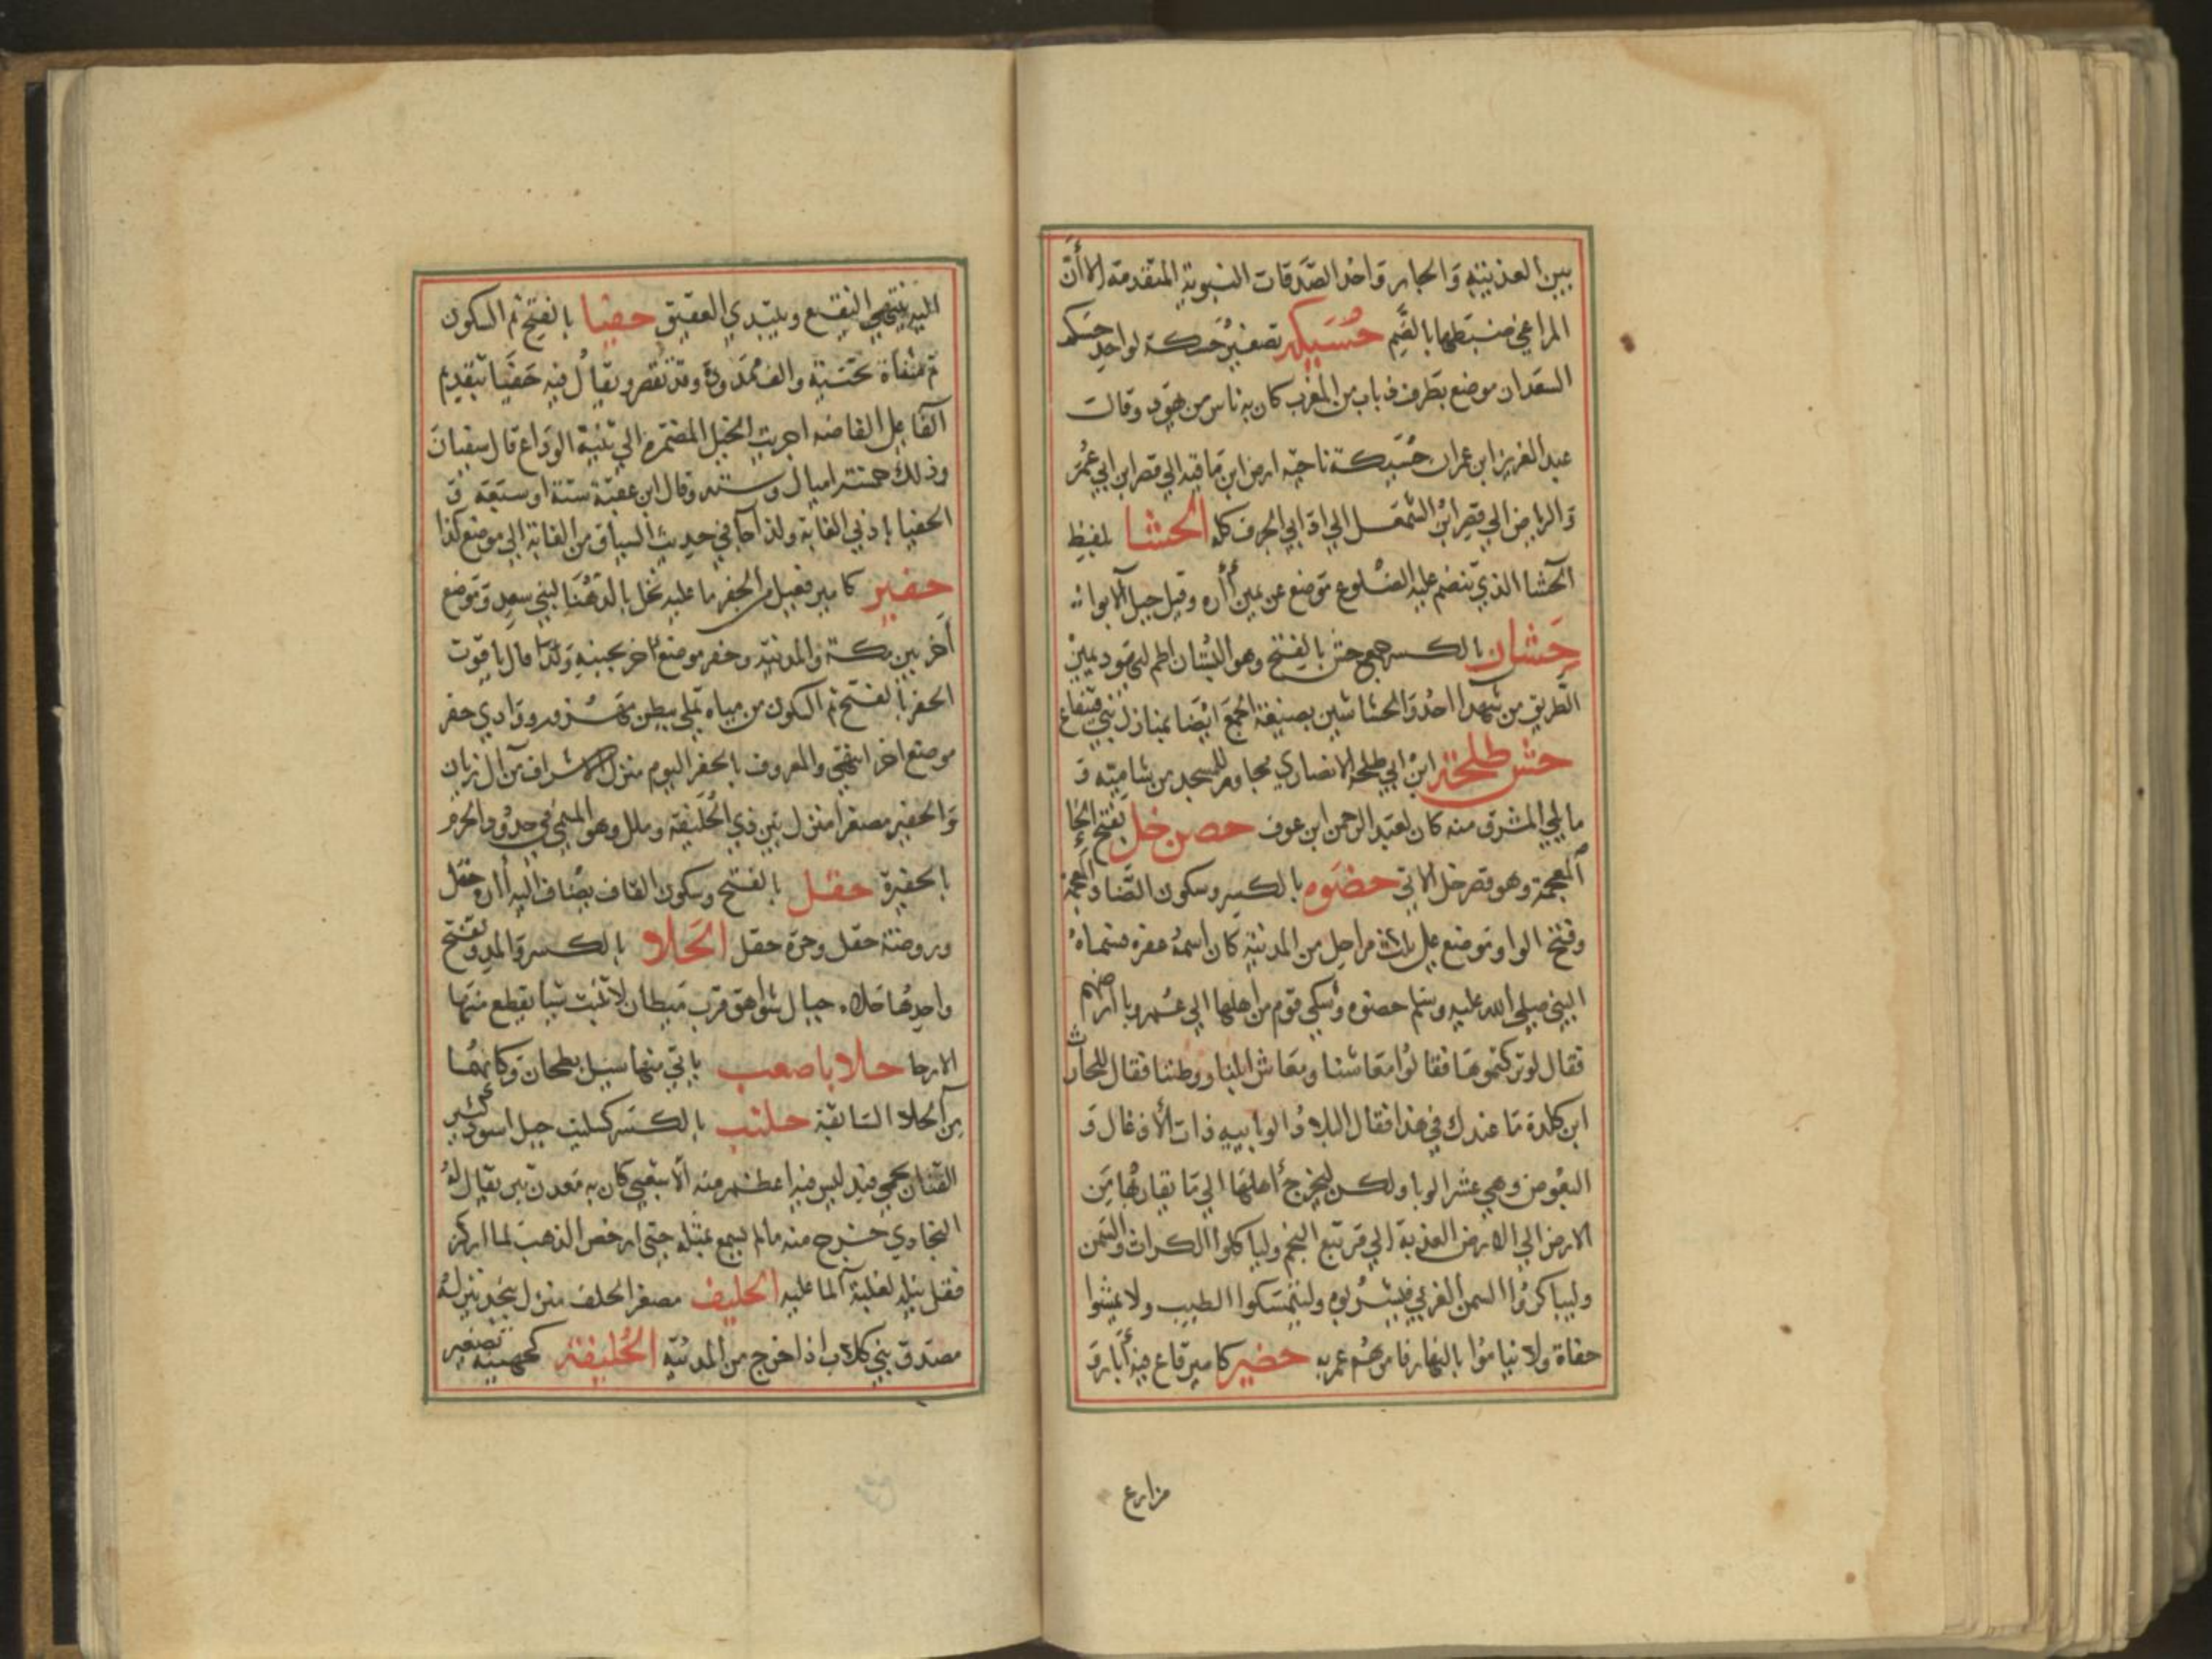 بين العذيبة والجار واحد الصدقات النبوية المتقدمة الا أن
المراعي ضبطها بالضم حسيكه تصغير حسكة لواحد حسك
السعدان موضع بطرف ذباب من المغرب كان به ناس من يهود وقالت
عبد العزيز ابن عمران حسيكة ناحية ارض ابن ماقيه الي قصر ابن ابي عمر
والرابض الي قصر ابن الشمعل الي اداني الجرف كله الحشا لمفيظ
الحشا الذي تنضم عليه الضلوع موضع عن يمين أاره وقيل جبل الابوا
حشان بالكسر جمع حش بالفتح وهو البستان اطم ليهود يمين
الطريق من شهدا احد والحشاشين بصيغة الجمع ايضا بمنازل بني قينقاع
حش طلحة ابن ابي طلحة الانصاري مجاور للمسجد من شاميته و
مايلي المشرق منه كان لعبد الرحمن ابن عوف حصن خل بفتح الخا
المعجمة وهو قصر خل الاتي حضوه بالكسر وسكون الضاد المعجمة
وفتح الواو موضع علي ثلاث مراحل من المدينة كان اسمه عفره فسماه
النبي صلي الله عليه وسلم حضوه وشكي قوم من اهلها الي عمر وبا ارضهم
فقال لو تركتموها فقالوا معاشنا ومعاش ابلنا ووطننا فقال للحارث
ابن كلدة ما عندك في هذا فقال البلاد الوابيه ذات الادغال و
البعوض وهي عش الوبا ولكن ليخرج أهلها الي ما يقاربها من
الارض الي الارض العذبة الي مرتبع النجم ولياكلوا الكراث والسمن
وليباكروا السمن العربي فيشربوه وليتمسكوا الطيب ولا يمشوا
حفاة ولا يناموا بالنهار فامرهم عمر به حضير كامير قاع فيه أبار و
مزارع
اليه ينتهي النقيع ويبتدي العقيق حفيا بالفتح ثم السكون
ثم مثناة تحتية والف ممدودة وقد تقصر ويقال فيه حيفا بتقديم
الفا علي الفاضه اجريت الخيل المضمرة الي ثنية الوداع قال سفيان
وذلك خمسة اميال وسته وقال ابن عقبة ستة او سبعة و
الحفيا إدني الغابة ولذا جا في حديث السباق من الغابة الي موضع كذا
حفير كامير فعيل من الحفر ما عليه نخل بالدهنا لبني سعد وموضع
أخر بين مكة والمدنية وحفر موضع اخر بجنبه ولذا قال ياقوت
الحفر بالفتح ثم السكون من مياه نملي ببطن مهزور ووادي حفر
موضع اخر انتهي والمعروف بالحفر اليوم منزل الاشراف من آل زيان
والحفير مصغرا منزل بين ذي الحليفة وملل وهو المسمي في حدود الحرم
بالحفيرة حقل بالفتح وسكون القاف يضاف اليه أاره حقل
وروضة حقل وحرة حقل الحلا بالكسر والمد وتفتح
واحدها حلاه جبال شواهق قرب ميطان لا تنبت شيا يقطع منها
الارحا حلاباصعب ياتي منها سيل بطحان وكانها
من الحلا السابقة حلتب بالكسر جبل اسود كبير
القنان يحمي فيد ليس فيه اعظم منه الا شعبي كان به معدن تبر يقال له
النجادي خرج منه مالم يسمع بمثله حتي ارخص الذهب
فقل نيله لغلبة الما عليه الحليف مصغر الحلف منزل بنجد ينزله
مصدق بني كلاب اذا خرج من المدنية الحليفة كجهينه تصغير